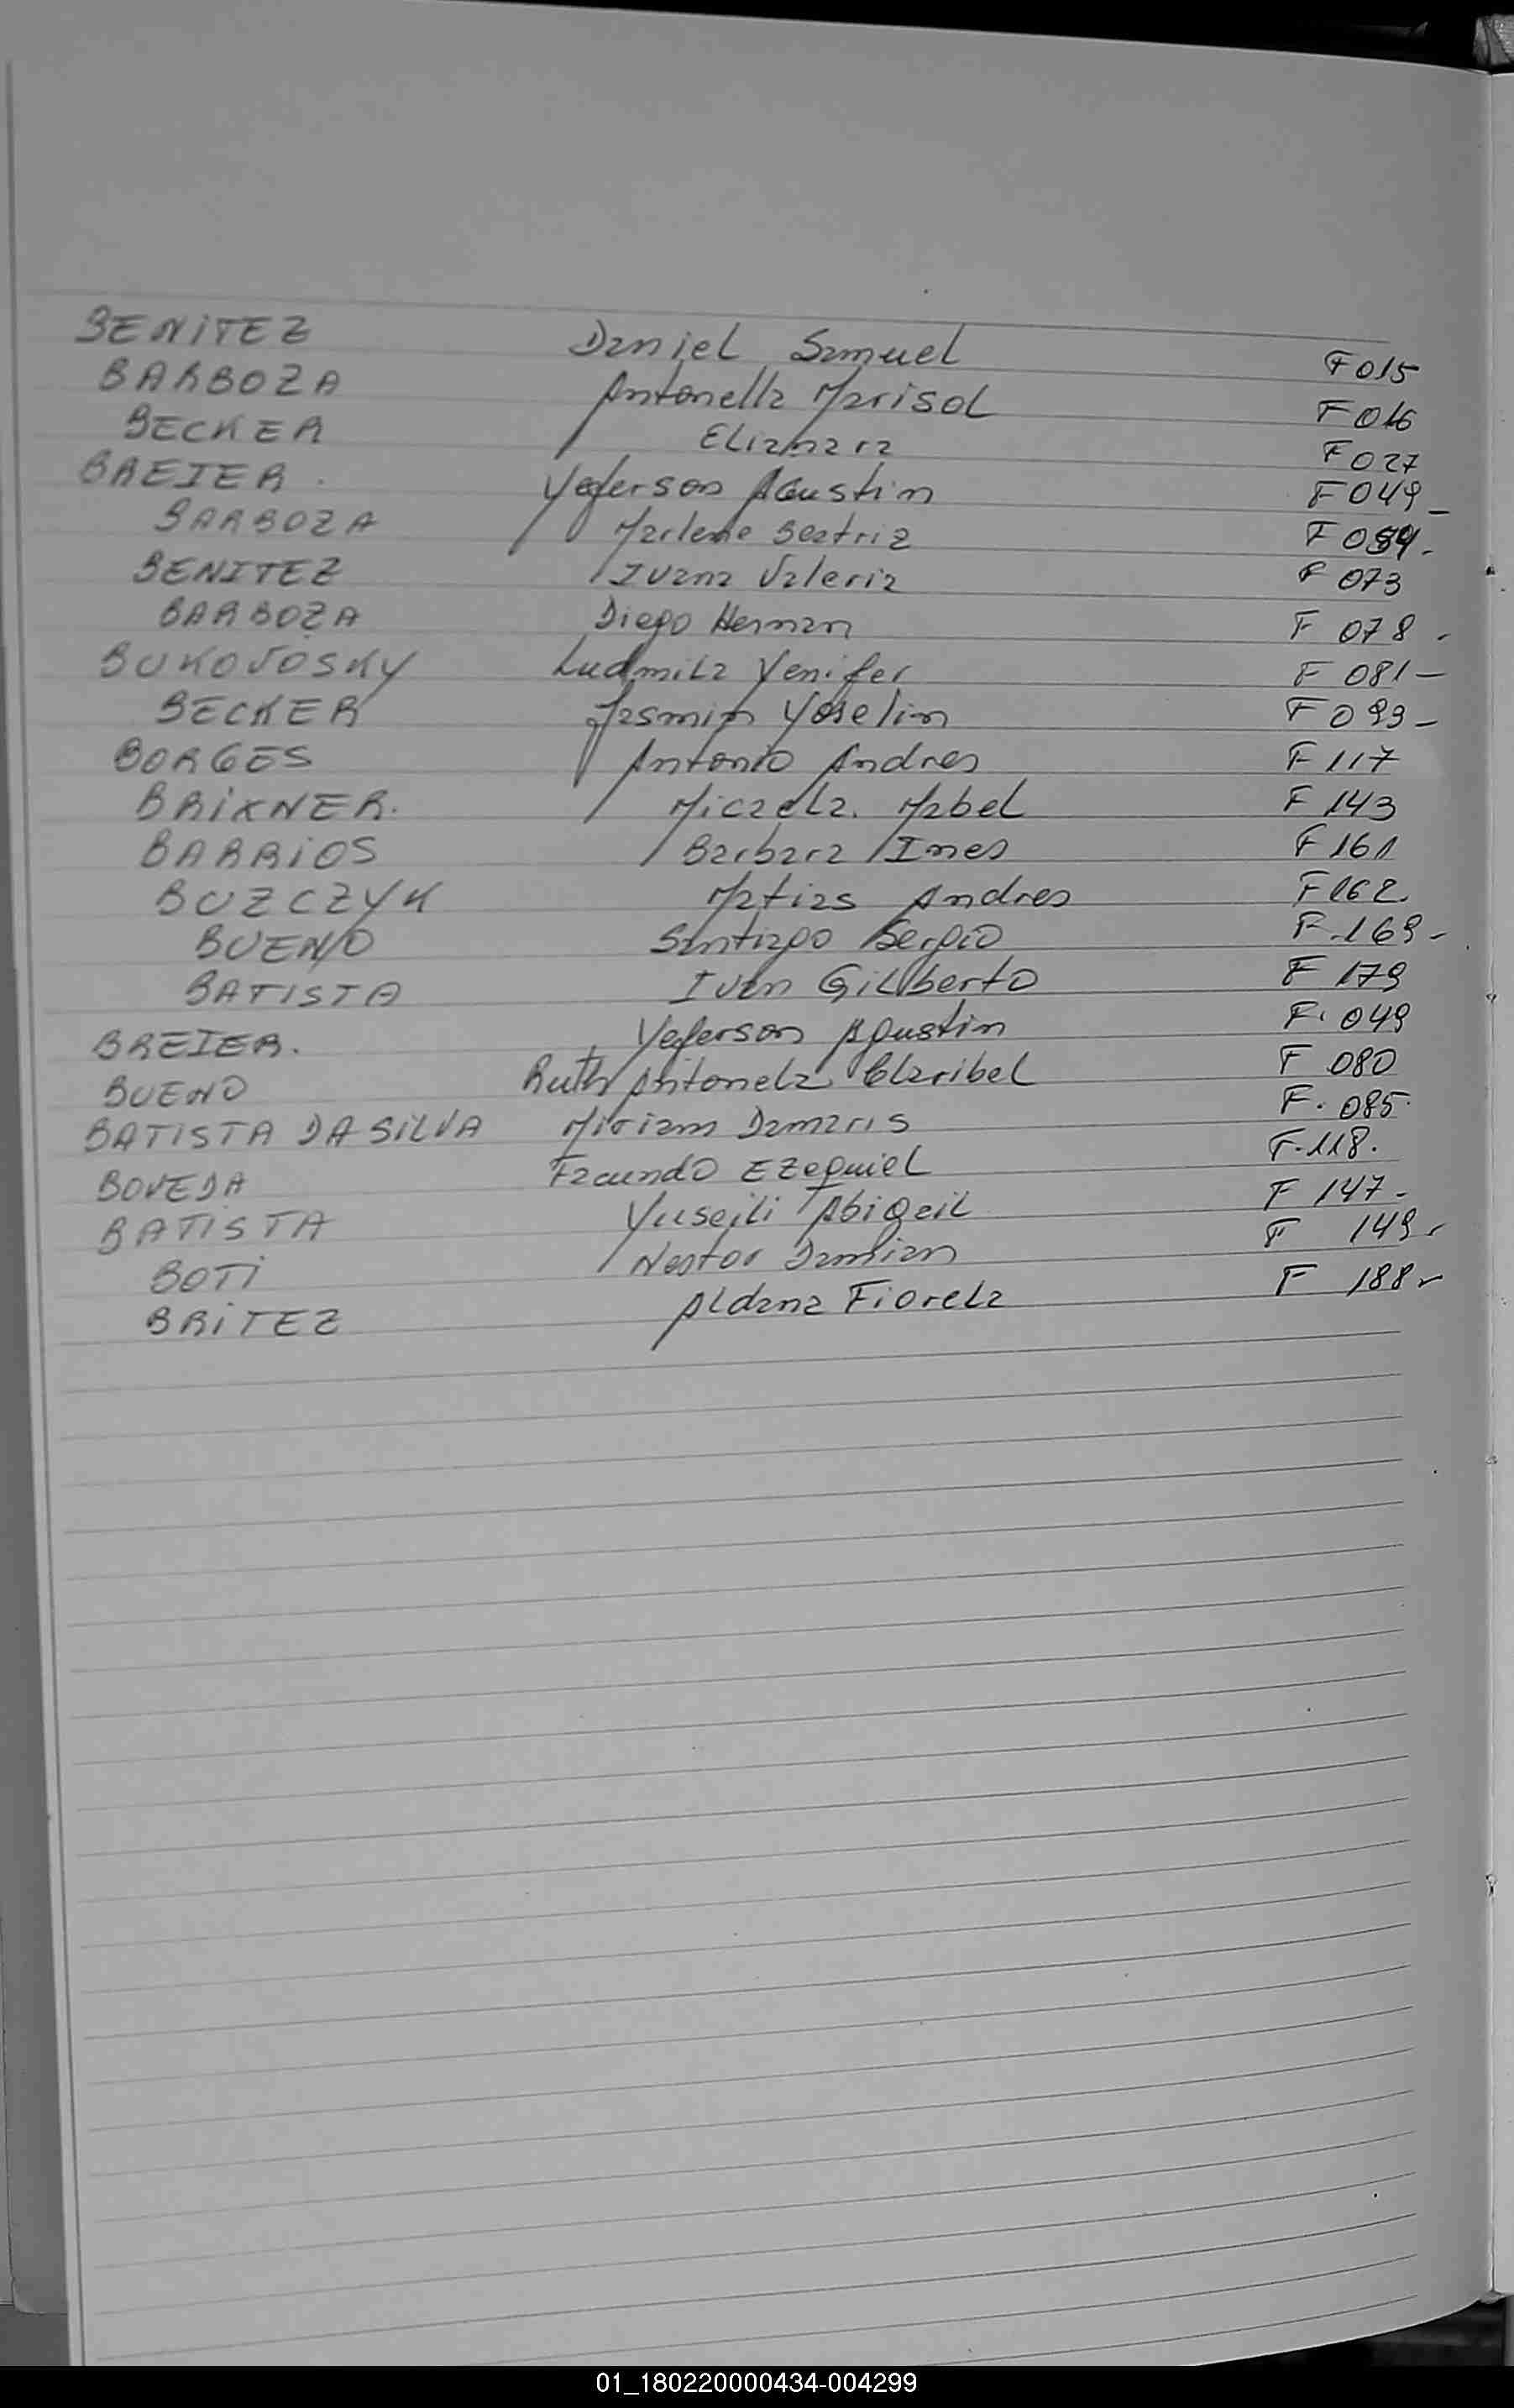 BENITEZ Daniel Samuel F 015
BARBOZA Antonella Marisol F 016
BECKER Elianara F 027
BREIER. Yeferson Agustin F 049-
BARBOZA Marlene Beatriz F 054.
BENITEZ Ivana Valeria F 073
BARBOZA Diego Hernan F 078.
BUKOVOSKY Ludmila Yenifer F 081-
BECKER Jasmin Yoselin F 099-
BORGES Antonio Andres F 117
BRIXNER. Micaela. Mabel F 143
BARRIOS Barbara Ines F 161
BUZCZYK Matias Andres F 162.
BUENO Santiago Sergio F.169-
BATISTA Ivan Gilberto F 179
BREIER. Yeferson Agustin F. 049
BUENO Ruth Antonela Claribel F 080
BATISTA DA SILVA Miriam Damaris F. 085.
BOVEDA Facundo Ezequiel F.118.
BATISTA Yuseili Abigail F 147-
BOTI Nestor Damian F 149-
BRITEZ Aldana Fiorela F 188-
01_180220000434-004299